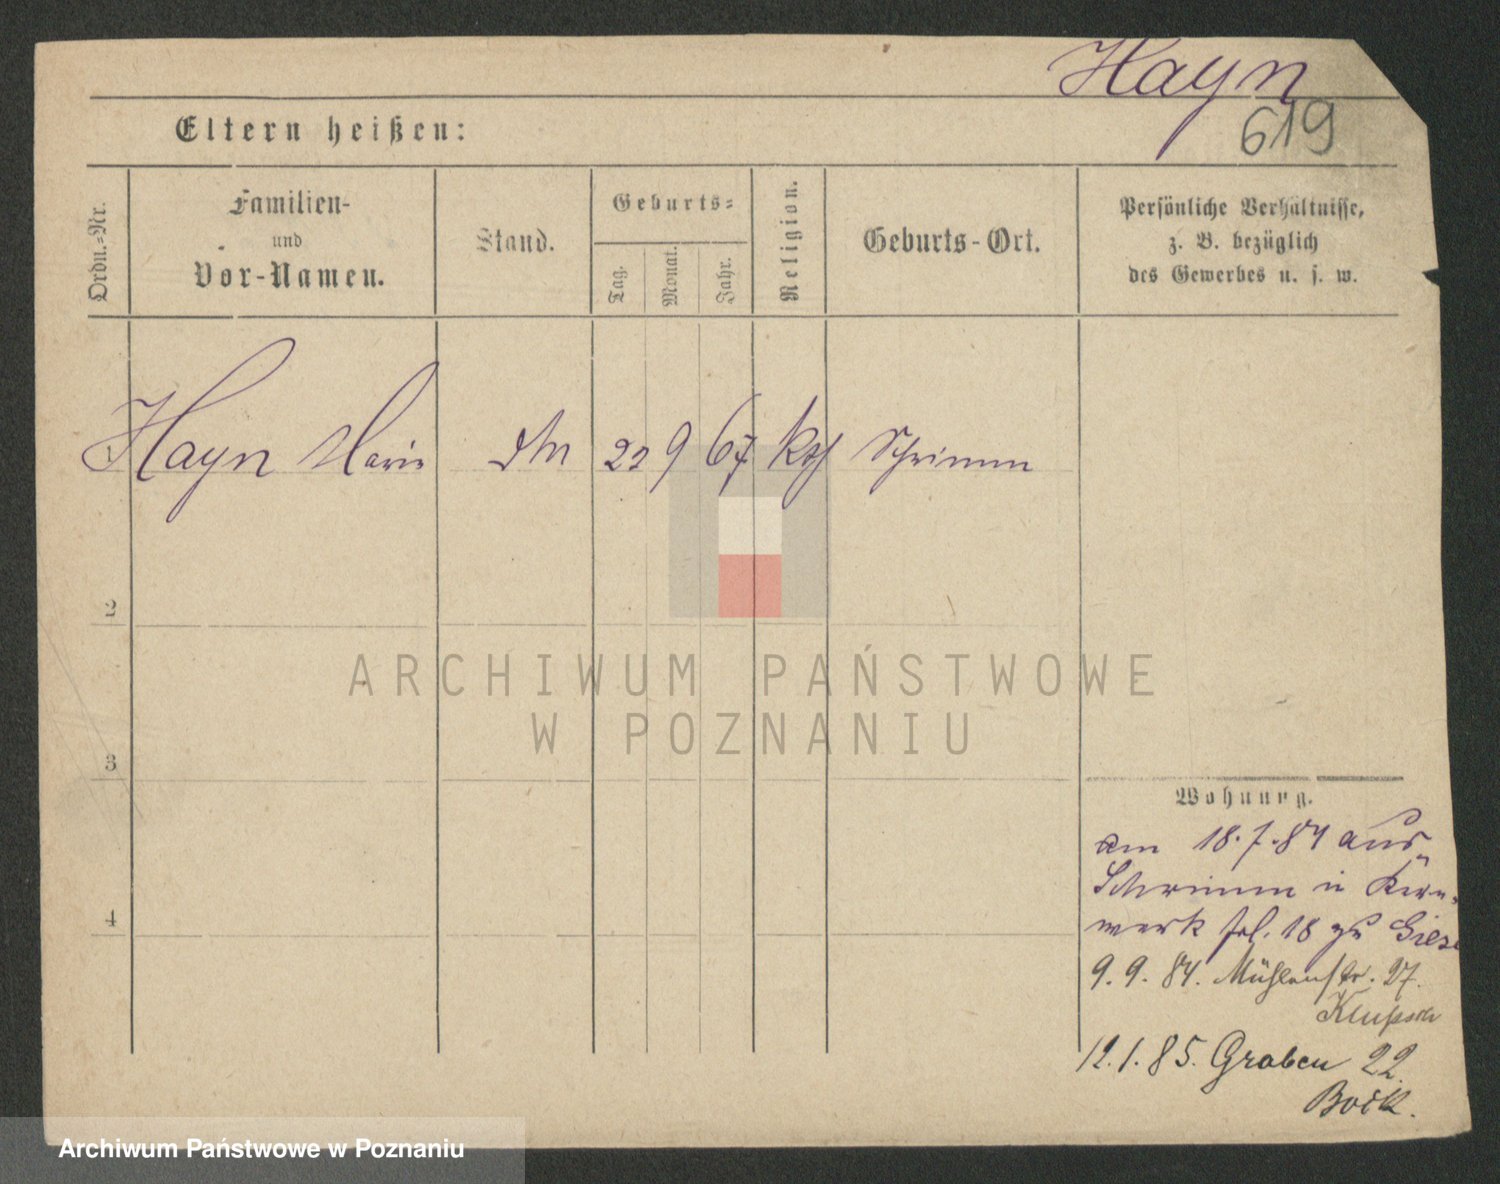 Hayn
619
Eltern heißen:
Ordn.-Nr.
Familien-
und
Vor-Namen.
Stand.
Geburts-
Tag.
Monat.
Jahr.
Religion.
Geburts-Ort.
Persönliche Verhältnisse,
z. B. bezüglich
des Gewerbes u. s. w.
1 Hayn Marie 22 9 67 kth Schrimm
2
ARCHIWUM PAŃSTWOWE
W POZNANIU
3
Wohnung.
am 18.7.84 aus
Schrimm in
werk 18 zu
4
9.9.84. Mühlenstr. 27.
12.1.85. Graben 22.
Bock.
Archiwum Państwowe w Poznaniu